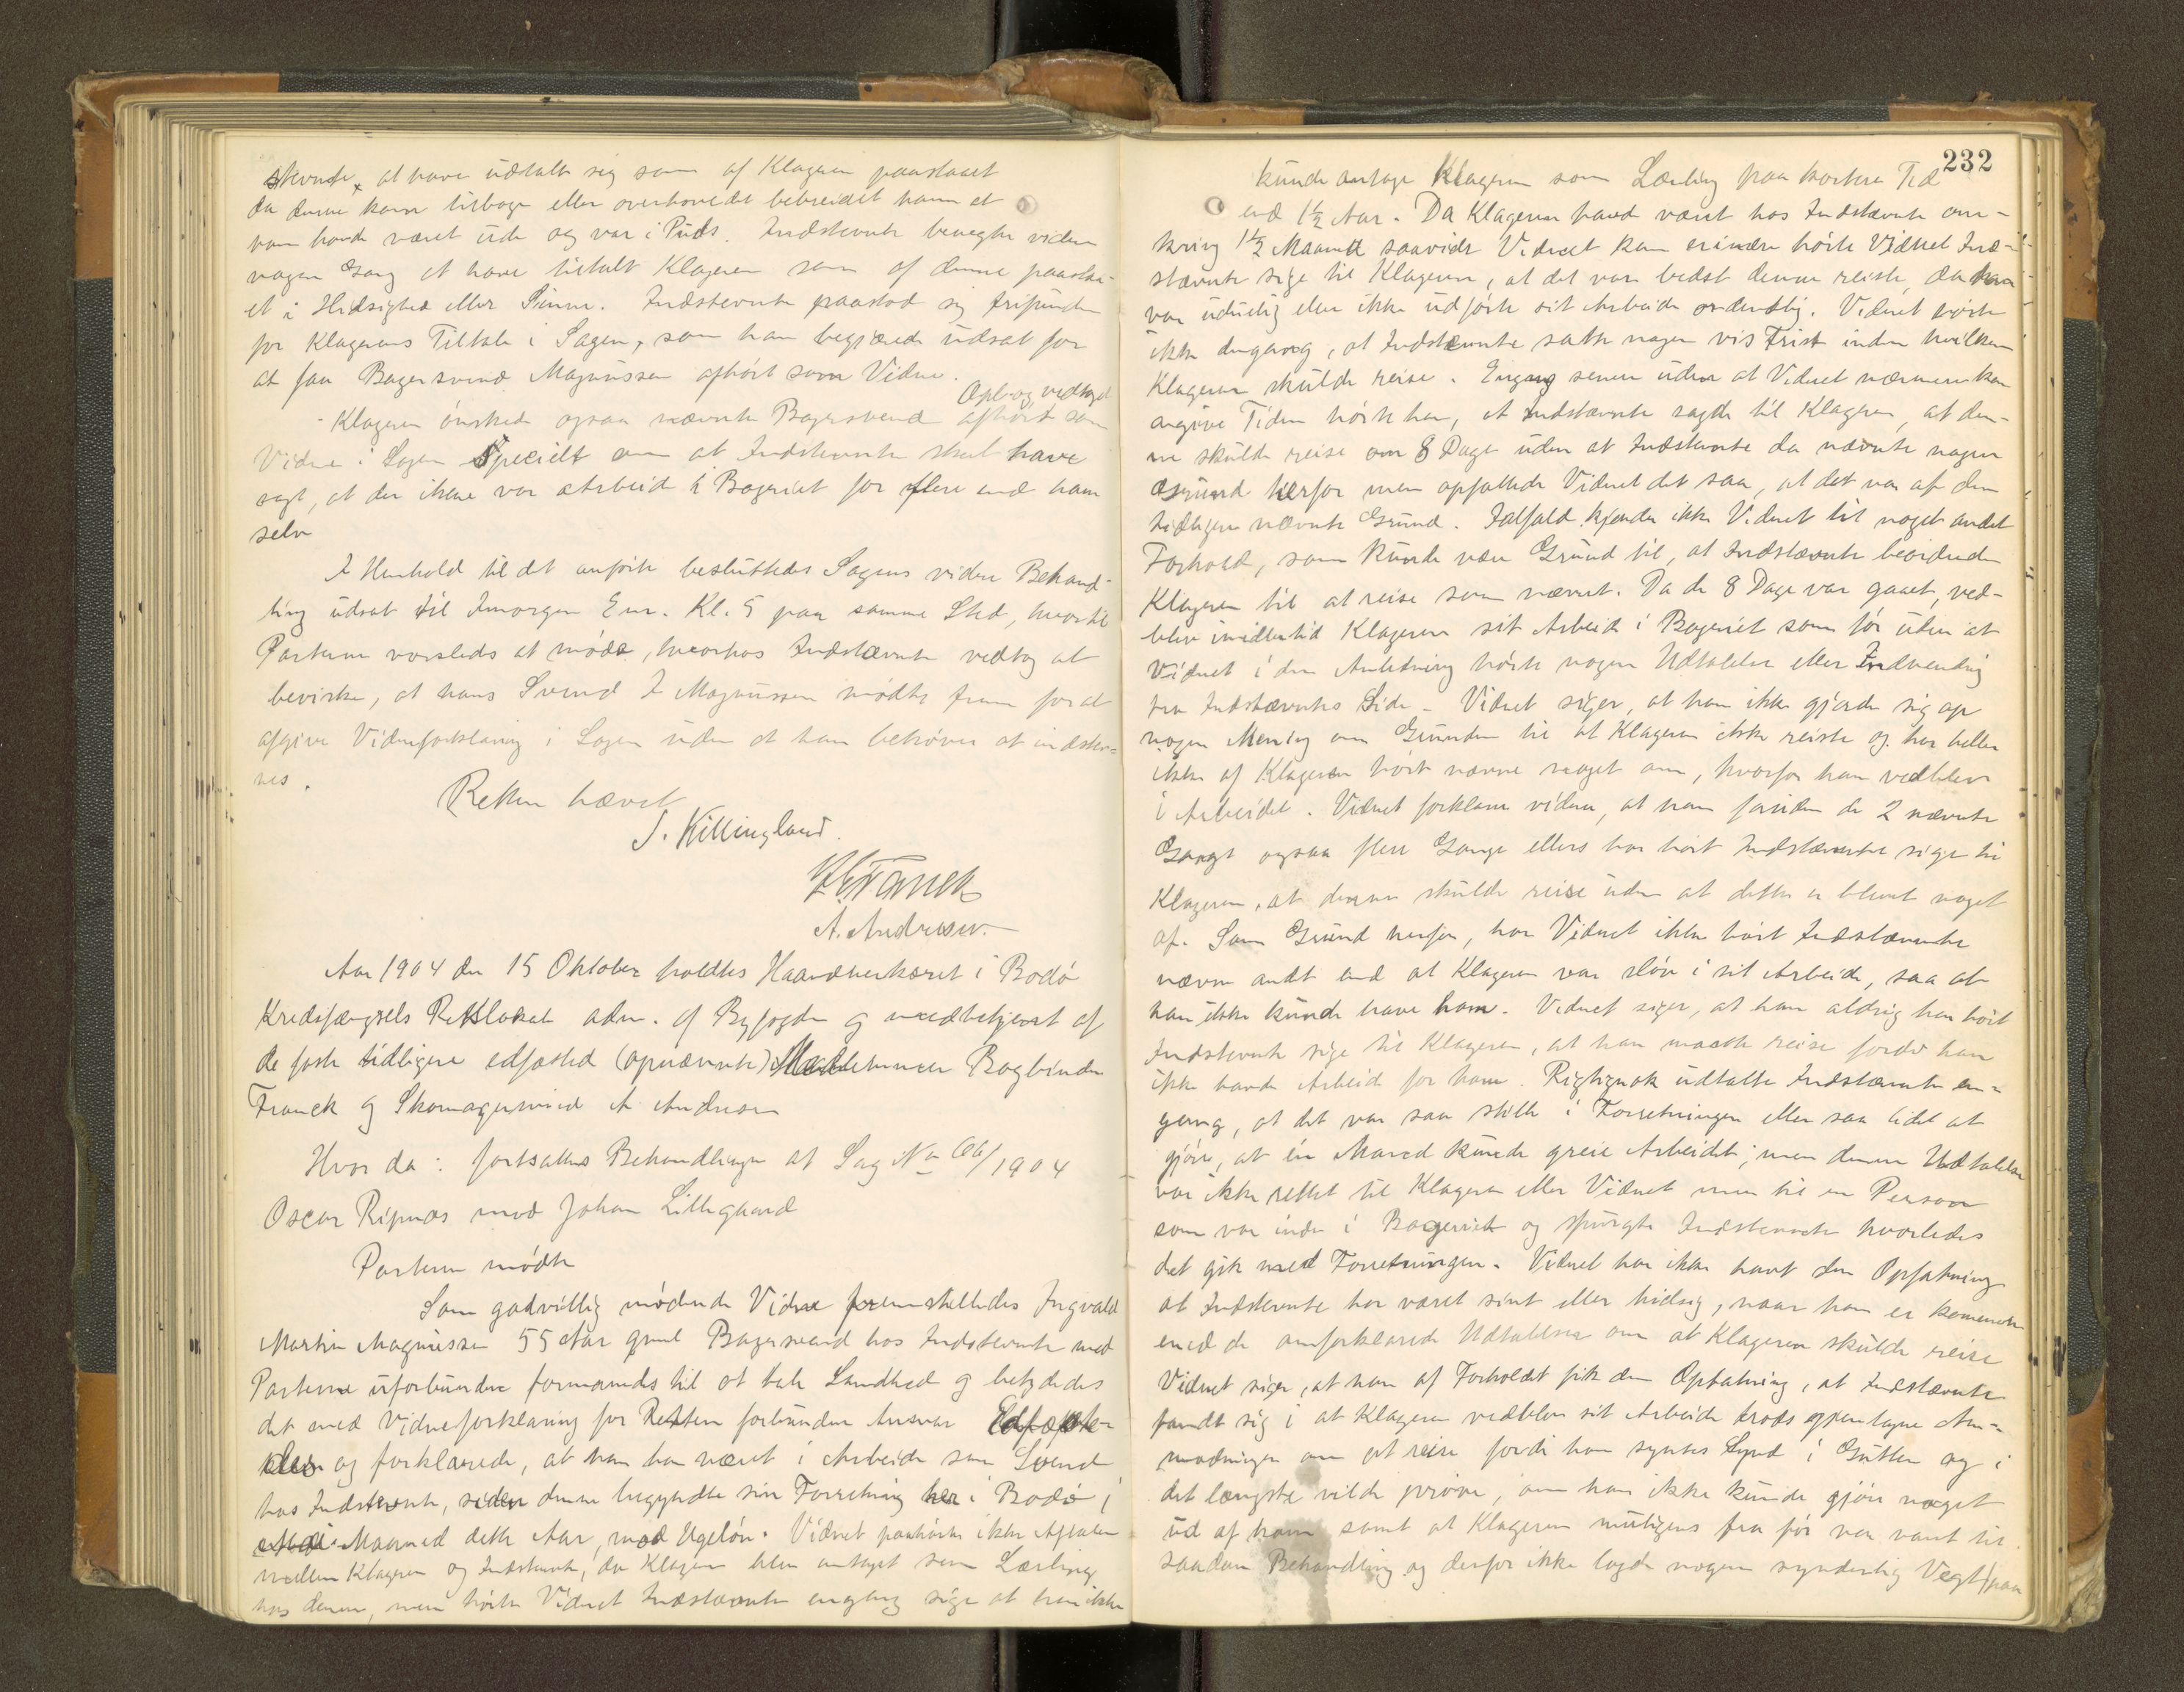 stevnte, at have udtalt sig som af Klageren paastaaet
da denne kom tilbage eller overhovedet bebreidet ham at
han havde været ude og var i Puds. Indstevnte benegter viden
nogen Gang at have tiltalt Klageren som af denne paastaa-
et i Hidsighed eller Sinne. Indstevnte paastod sig frifunden
for Klagerens Tiltale i Sagen, som han begjærede udsat for
at faa Bagersvend Magnussen afhørt som Vidne.
Opl. og vedtaget
Klageren ønskede ogsaa nævnte Bagersvend afhørt som
Vidne i Sagen Specielt om at Indstevnte skal have
sagt, at der ikke var Arbeide i Bageriet for flere end ham
selv
I Henhold til det anførte besluttedes Sagens videre Behand-
ling udsat til Imorgen Em. Kl. 5 paa samme Sted, hvortil
Parterne varsleds at møde, hvorhos Indstævnte vedtog at
bevirke, at hans Svend I Magnussen mødte frem for at
afgive Vidneforklaring i Sagen uden at han behøver at indstev-
nes.
Retten hævet
S. Killingland.
Franck
A. Andresen.
Aar 1904 den 15 Oktober holdtes Haandverksret i Bodø
Kredsfængsels Retslokale adm. af Byfogden og medbetjent af
de faste tidligere edfæsted (opnævnte) Medlemmer Bogbinder
Franck og Skomagersvend A. Andresen
Hvor da: fortsattes Behandlingen af Sag No 66/1904
Oscar Ripnæs mod Johan Lillegaard
Parterne mødte
Som godvillig mødende Vidne fremstilledes Ingvald
Martin Magnussen 55 Aar gml Bagersvend hos Indstevnte med
Parterne uforbunden formanedes til at tale Sandhed og betydedes
det med Vidneforklaring for Retten forbundne Ansvar
og forklarede, at han har været i Arbeide som Svend
hos Indstevnte, siden denne begyndte sin Forretning her i Bodø i
Mai Maaned dette Aar, mod Ugeløn. Vidnet paahørte ikke Aftalen
mellem Klageren og Indstevnte, da Klageren blev antaget som Lærling
hos denne, men hørte Vidnet Indstævnte engang sige at han ikke
232
kunde antage Klageren som Lærling paa kortere Tid
end 1½ Aar. Da Klageren havde været hos Indstævnte om-
kring 1½ Maaned saavidt Vidnet kan erindre hørte Vidnet Ind-
stævnte sige til Klageren, at det var bedst denne reiste, da han
var uduelig eller ikke udførte sit Arbeide ordentlig. Vidnet hørte
ikke dengang, at Indstævnte satte nogen vis Frist inden hvilken
Klageren skulde reise. Engang senere uden at Vidnet nærmere kan
angive Tiden hørte han, at Indstævnte sagde til Klageren, at den-
ne skulde reise om 8 Dage uden at Indstevnte da nævnte nogen
Grund herfor men opfattede Vidnet det saa, at det var af den
tidligere nævnte Grund. Ialfald kjender ikke Vidnet til noget andet
Forhold, som kunde være Grund til, at Indstævnte beordrede
Klageren til at reise som nævnt. Da de 8 Dage var gaaet, ved-
blev imidlertid Klageren sit Arbeide i Bageriet som før uden at
Vidnet i den Anledning hørte nogen Udtalelse eller Indvending
fra Indstævntes Side. Vidnet siger, at han ikke gjorde sig op
nogen Mening om Grunden til at Klageren ikke reiste og har heller
ikke af Klageren hørt nævne noget om, hvorfor han vedblev
i Arbeidet. Vidnet forklarer videre, at han foruden de 2 nævnte
Gange ogsaa flere Gange ellers har hørt Indstævnte sige til
Klageren, at denne skulde reise uden at dette er blevet noget
af. Som Grund herfor, har Vidnet ikke hørt Indstævnte
nævne andt end at Klageren var sløv i sit Arbeide, saa at
han ikke kunde have ham. Vidnet siger, at han aldrig har hørt
Indstevnte sige til Klageren, at han maatte reise fordi han
ikke havde Arbeid for ham. Rigtignok udtalte Indstævnte en-
gang, at det var saa stille i Forretningen eller saa lidet at
gjøre, at én Mand kunde greie Arbeidet; men denne Udtalelse
var ikke rettet til Klageren eller Vidnet men til en Person
som var inde i Bageriet og spurgte Indstevnte hvorledes
det gik med Forretningen. Vidnet har ikke havt den Opfatning
at Indstevnte har været sint eller hidsig, naar han er kommen
med de omforklarede Udtalelser om at Klageren skulde reise
Vidnet siger, at han af Forholdet fik den Opfatning, at Indstævnte
fandt sig i at Klageren vedblev sit Arbeide trods gjentagne An-
modninger om at reise fordi han syntes Synd i Gutten og i
det længste vilde prøve, om han ikke kunde gjøre noget
ud af ham samt at Klageren muligens fra før var vant til
saadan Behandling og derfor ikke lagde nogen synderlig Vegt paa